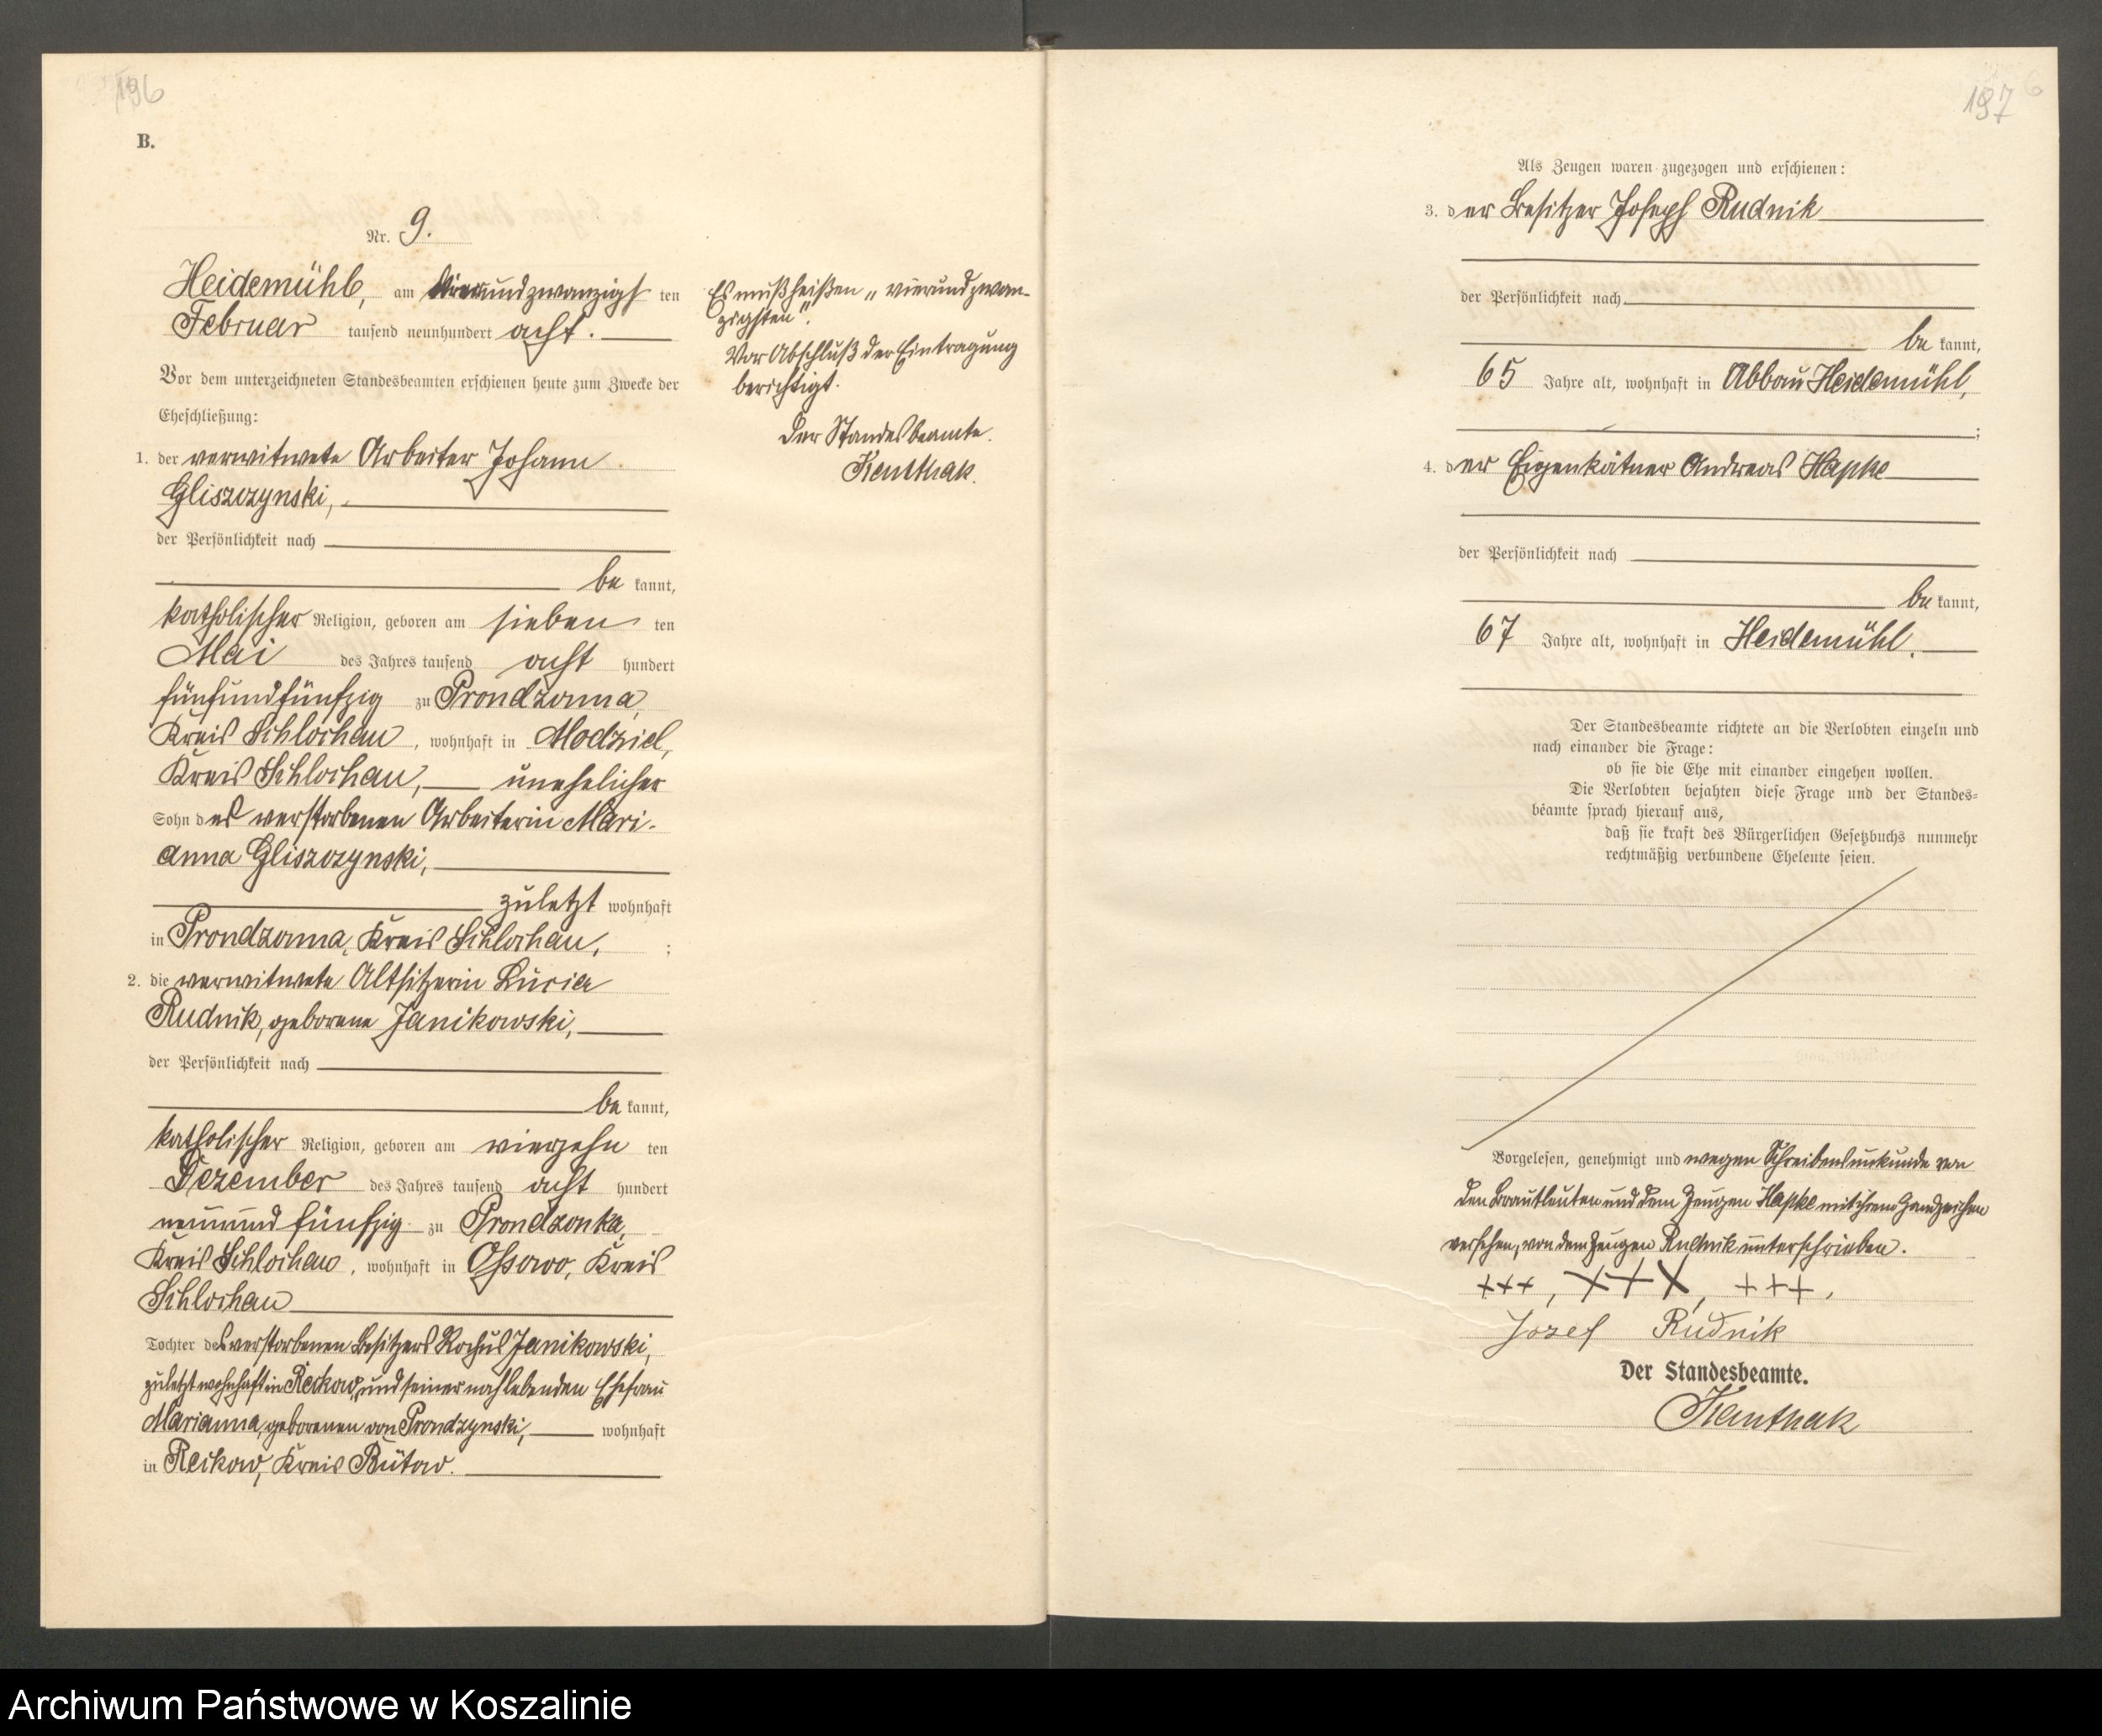 196
B.
Nr. 9.
Heidemühl, am vierundzwanzigsten
Februar tausend neunhundert acht.
Vor dem unterzeichneten Standesbeamten erschienen heute zum Zwecke der
Eheschließung:
1. der verwitwete Arbeiter Johann
Gliszczynski,
der Persönlichkeit nach
be kannt,
katholischer Religion, geboren am sieben ten
Mai des Jahres tausend acht hundert
fünfundfünfzig zu Prondzonna,
Kreis Schlochau, wohnhaft in Modziel,
Kreis Schlochau, unehelicher
Sohn der verstorbenen Arbeiterin Mari-
anna Gliszczynski,
zuletzt wohnhaft
in Prondzonna, Kreis Schlochau, ;
2. die verwitwete Altsitzerin Lucia
Rudnik, geborene Janikowski,
der Persönlichkeit nach
be kannt,
katholischer Religion, geboren am vierzehn ten
Dezember des Jahres tausend acht hundert
neunund fünfzig zu Prondzonka,
Kreis Schlochau, wohnhaft in Ossowo, Kreis
Schlochau
Tochter des verstorbenen Besitzers Rochus Janikowski,
zuletzt wohnhaft in Reckow, und seiner nachlebenden Ehefrau
Marianna, geborenen von Prondzynski, wohnhaft
in Reckow, Kreis Bütow.
Es muß heißen „vierundzwan-
zigsten".
Vor Abschluß der Eintragung
berichtigt.
Der Standesbeamte.
Kanthak.
197
6
Als Zeugen waren zugezogen und erschienen:
3. der Besitzer Joseph Rudnik
der Persönlichkeit nach
be kannt,
65 Jahre alt, wohnhaft in Abbau Heidemühl,
;
4. der Eigenkätner Andreas Hapke
der Persönlichkeit nach
be kannt,
67 Jahre alt, wohnhaft in Heidemühl.
Der Standesbeamte richtete an die Verlobten einzeln und
nach einander die Frage:
ob sie die Ehe mit einander eingehen wollen.
Die Verlobten bejahten diese Frage und der Standes-
beamte sprach hierauf aus,
daß sie kraft des Bürgerlichen Gesetzbuchs nunmehr
rechtmäßig verbundene Eheleute seien.
Vorgelesen, genehmigt und wegen Schreibensunkunde von
den Brautleuten und dem Zeugen Hapke mit ihrem Handzeichen
versehen, von dem Zeugen Rudnik unterschrieben.
+++, +++, +++.
Jozef Rudnik
Der Standesbeamte.
Kanthak
Archiwum Państwowe w Koszalinie